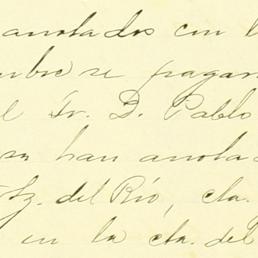 anotados con l
mbre se pagar
el Sr. D. Pablo
sa han anotad
tz. del Río, cta.
en la cta. del